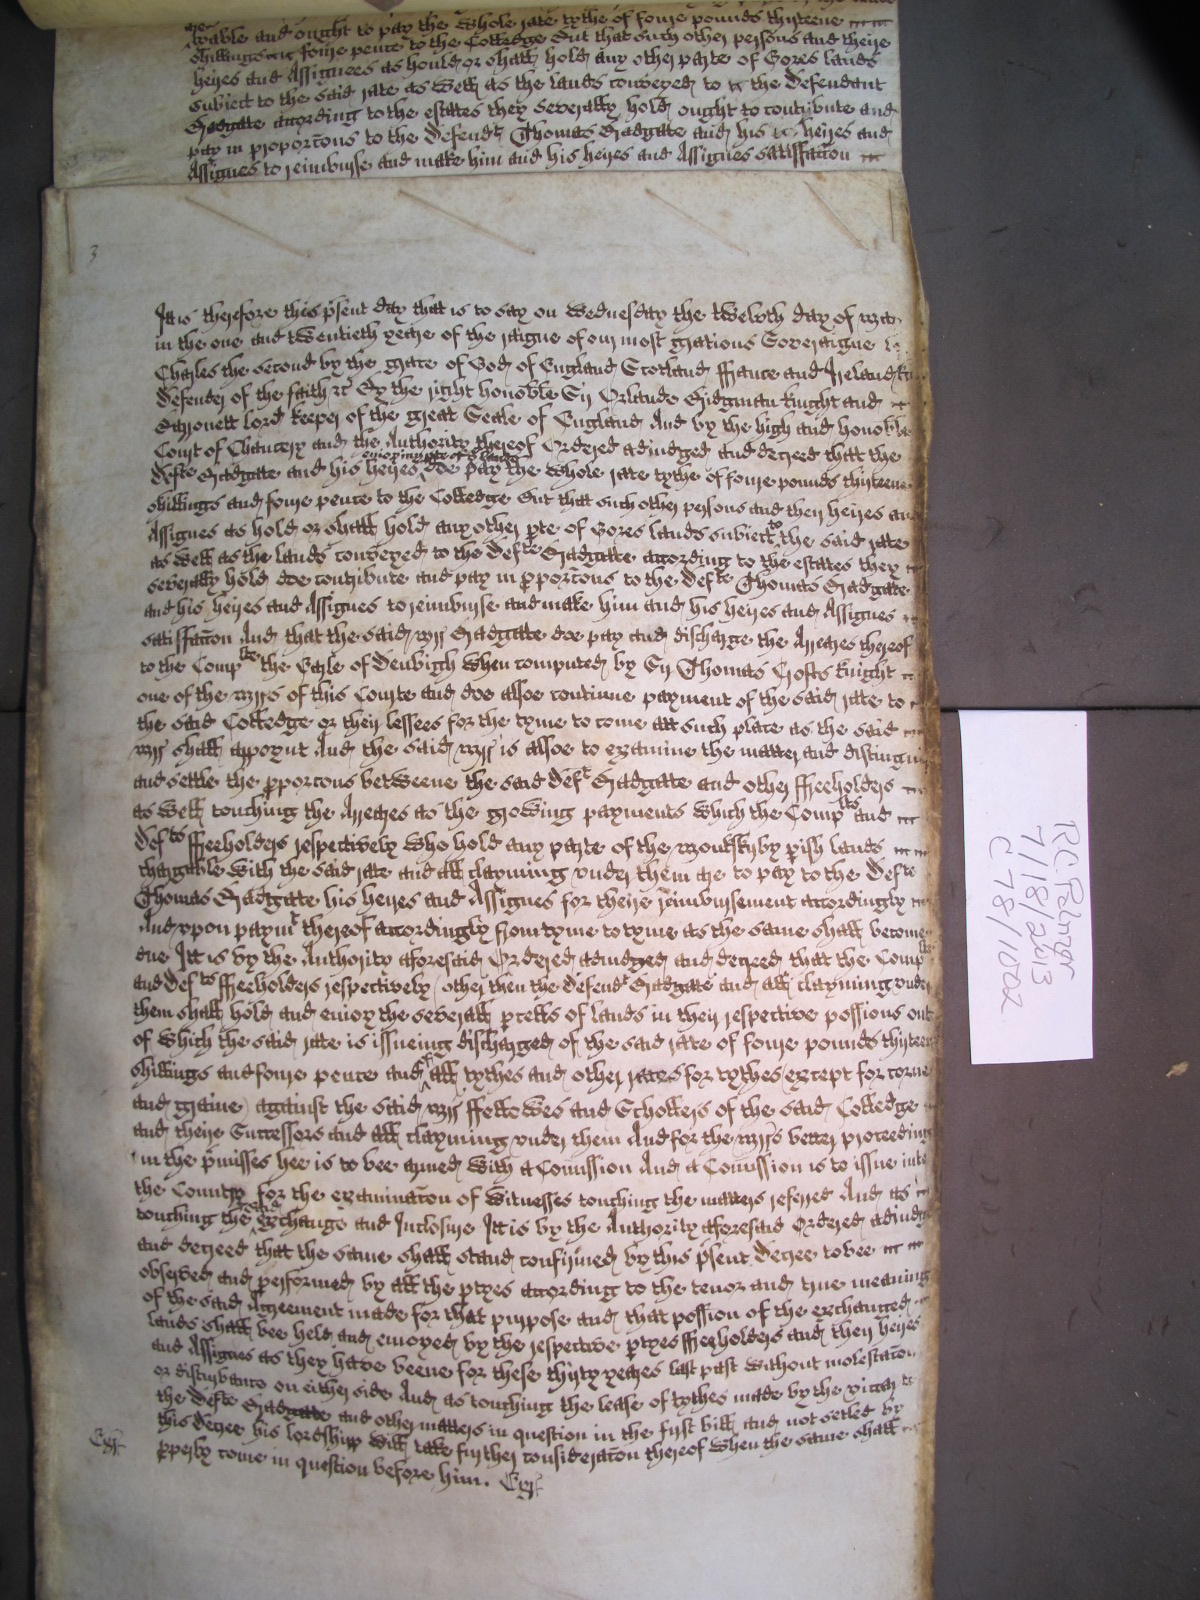 lyable and ought to pay the whole rate tythe of foure pounds thyrteene
shillings foure pence to the Colledge But that such other persons and theire
heyres and Assignees as hould or shall hold any other parte of Gores lands
subiect to the said rate as well as the lands conveyed to the Defendant
Gadgate according to the estates they severally hold ought to contribute and
pay in proporcons to the Defendt Thomas Gadgate and his heyres and
Assignes to reimburse and make him and his heyres and Assignes satisfaccon
3
Itt is therefore this psent day that is to say on Wednesday the twelvth day of
in the one and twentieth yeare of the raigne of our most gratious Soveraigne
Charles the second by the grace of God of England Scotland ffrance and Ireland
Defender of the faith &c By the right honoble Sr Orlando Bridgman Knight and
Barronett lord Keeper of the great Seale of England And by the high and honoble
Court of Chancery and the Authority thereof Ordered adiudged and decreed that the
Defte Gadgate and his heyres doe pay the whole rate tythe of foure pounds thirteene
shillings and foure pence to the Colledge But that such other persons and their heyres and
Assignes as hold or shall hold any other pte of Gores lands subiect to the said rate
as well as the lands conveyed to the Defte Gadgate according to the estates they
severally hold doe contribute and pay in pporcons to the Defte Thomas Gadgate
and his heyres and Assignes to reimburse and make him and his heyres and Assignes
satisfaccon And that the said Mr Gadgate doe pay and discharge the Arreares thereof
to the Complte the Earle of Denbigh when computed by Sr Thomas Crofts Knight
one of the Mrs of this Courte and doe alsoe continue payment of the said rate to
the said Colledge or their lessees for the tyme to come att such place as the said
Mr shall appoynt And the said Mr is alsoe to examine the matter and distinguish
and settle the pporcons betweene the said Deft Gadgate and other ffreeholders
as well touching the Arreares as the growing payments which the Complts and
Defts ffreeholders respectively who hold any parte of the Monkskyrby pish lands
chargable with the said rate and all clayming under them are to pay to the Defte
Thomas Gadgate his heyres and Assignes for theire reimbursement accordingly
And upon paymt thereof accordingly from tyme to tyme as the same shall become
due Itt is by the Authority aforesaid Ordered adiudged and decreed that the Complts
and Defts ffreeholders respectively other then the Defendt Gadgate and all clayming under
them shall hold and enioy the severall pcells of lands in their respective possions out
of which the said rate is issueing discharged of the said rate of foure pounds thirteen
shillings and foure pence and all tythes and other rates for tythes (except for corne
and graine) against the said Mr ffellowes and Schollers of the said Colledge
and theire Successors and all clayming under them And for the Mrs better proceeding
in the pmisses hee is to bee armed with a Comission And a Comission is to issue into
the Country for the examinacon of witnesses touching the matters referred And as
touching the said exchange and Inclosure Itt is by the Authority aforesaid Ordered adiudged
and decreed that the same shall stand confirmed by this psent Decree to bee
observed and performed by all the ptyes according to the tenor and true meaning
of the said Agreement made for that purpose and that possion of the exchanged
lands shall bee held and enioyed by the respective ptyes ffreeholders and their heyres
and Assignes as they have beene for these thirty yeares last past without molestacon
or disturbance on either side And as touching the lease of tythes made by the vicar to
the Defte Gadgate and other matters in question in the first bill and not setled by
this decree his lordshipp will take further consideracon thereof when the same shall
pperly come in question before him.
R C Palmer
7/18/2013
C 78/1002